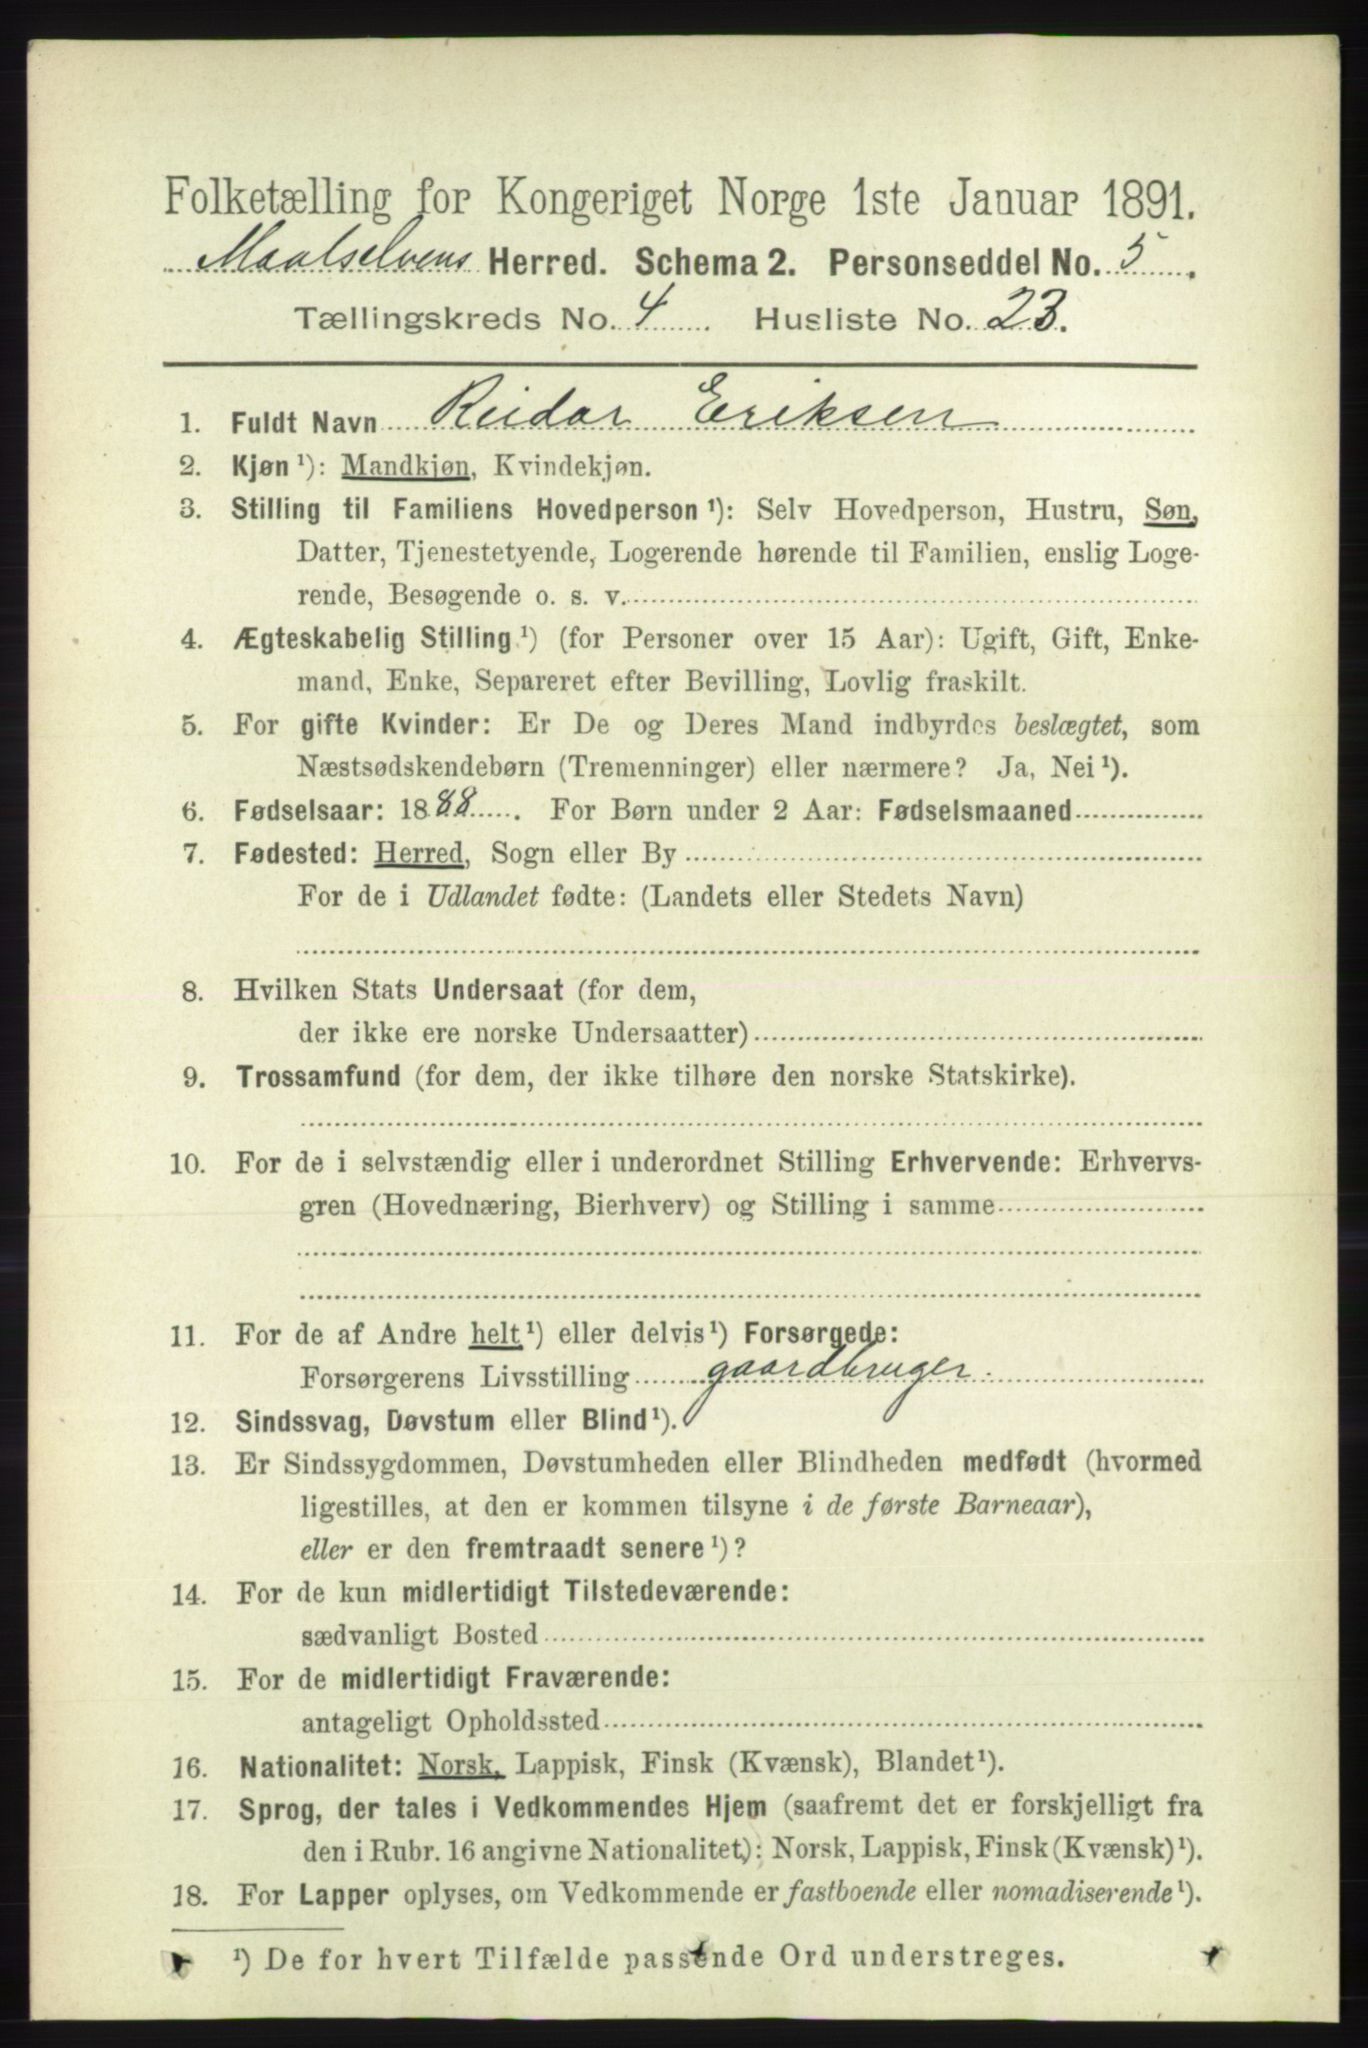 Folketælling for Kongeriget Norge 1ste Januar 1891.
Maalselvens Herred. Schema 2. Personseddel No. 5.
Tællingskreds No. 4 Husliste No. 23.
1. Fuldt Navn Reidar Eriksen
2. Kjøn ¹): Mandkjøn, Kvindekjøn.
3. Stilling til Familiens Hovedperson ¹): Selv Hovedperson, Hustru, Søn,
Datter, Tjenestetyende, Logerende hørende til Familien, enslig Loge-
rende, Besøgende o. s. v.
4. Ægteskabelig Stilling.¹) (for Personer over 15 Aar): Ugift, Gift, Enke-
mand, Enke, Separeret efter Bevilling, Lovlig fraskilt.
5. For gifte Kvinder: Er De og Deres Mand indbyrdes beslægtet, som
Næstsødskendebørn (Tremenninger) eller nærmere? Ja, Nei ¹).
6. Fødselsaar: 1888. For Børn under 2 Aar: Fødselsmaaned
7. Fødested: Herred, Sogn eller By
For de i Udlandet fødte: (Landets eller Stedets Navn)
8. Hvilken Stats Undersaat (for dem,
der ikke ere norske Undersaatter)
9. Trossamfund (for dem, der ikke tilhøre den norske Statskirke).
10. For de i selvstændig eller i underordnet Stilling Erhvervende: Erhvervs-
gren (Hovednæring, Bierhverv) og Stilling i samme
11. For de af Andre helt ¹) eller delvis ¹) Forsørgede:
Forsørgerens Livsstilling gaardbruger.
12. Sindssvag, Døvstum eller Blind ¹).
13. Er Sindssygdommen, Døvstumheden eller Blindheden medfødt (hvormed
ligestilles, at den er kommen tilsyne i de første Barneaar),
eller er den fremtraadt senere ¹)?
14. For de kun midlertidigt Tilstedeværende:
sædvanligt Bosted
15. For de midlertidigt Fraværende:
antageligt Opholdssted
16. Nationalitet: Norsk, Lappisk, Finsk (Kvænsk), Blandet ¹).
17. Sprog, der tales i Vedkommendes Hjem (saafremt det er forskjelligt fra
den i Rubr. 16 angivne Nationalitet): Norsk, Lappisk, Finsk (Kvænsk) ¹).
18. For Lapper oplyses, om Vedkommende er fastboende eller nomadiserende ¹).
¹) De for hvert Tilfælde passende Ord understreges.